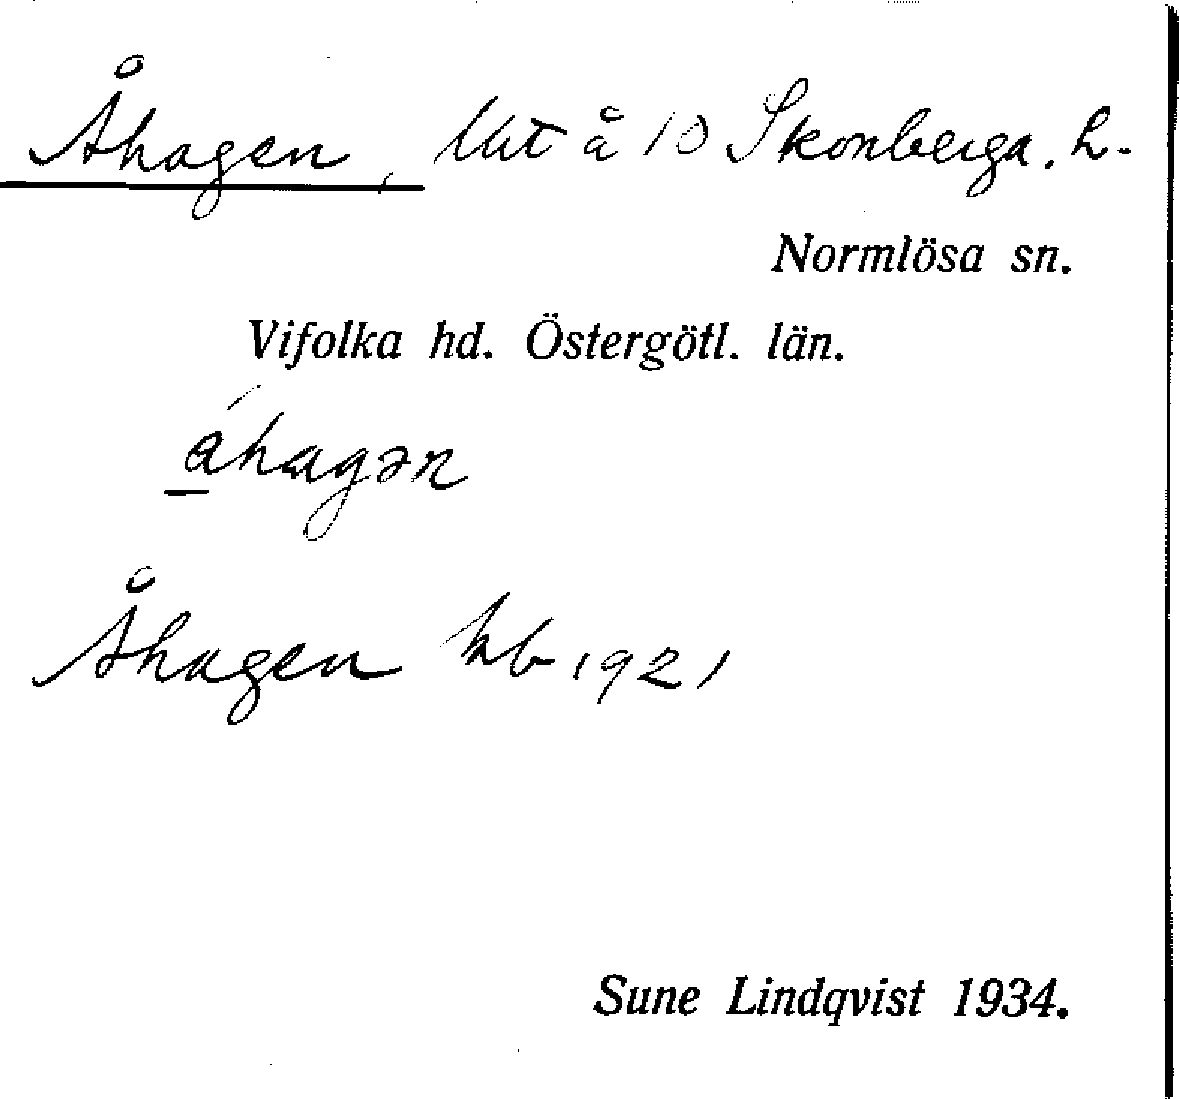 Åhagen, lht å 10 Skonberga. h.
Normlösa sn.
Vifolka hd. Östergötl. län.
åhagən
Åhagen kb 1921
Sune Lindqvist 1934.